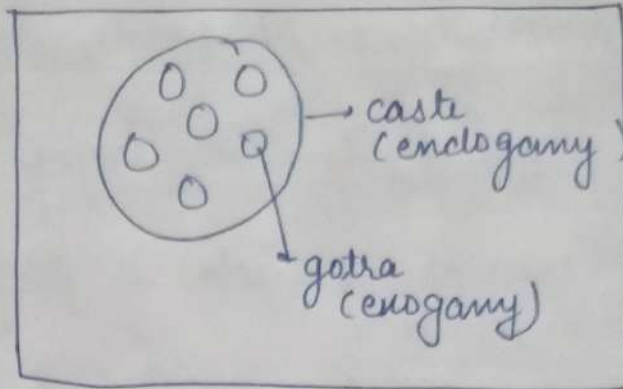 caste
(endogamy)
gotra
(exogamy)